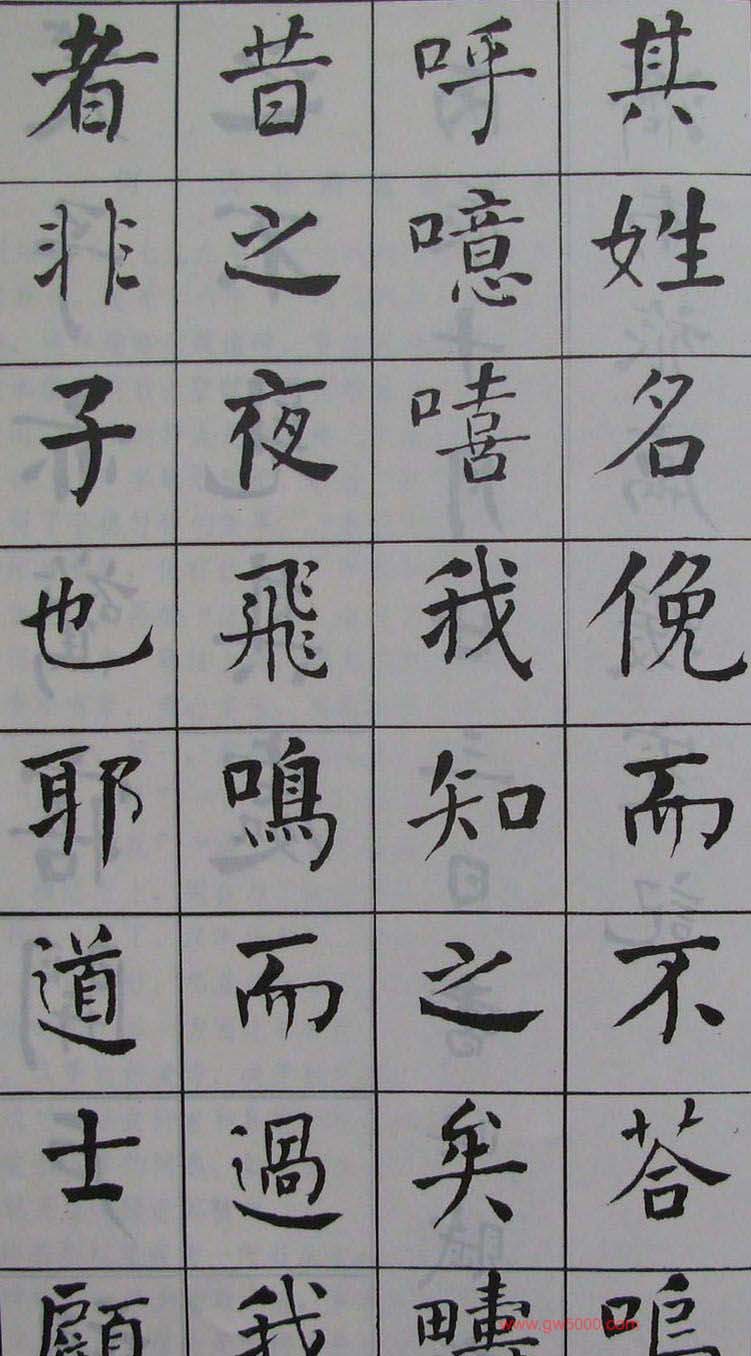 其姓名俛而不荅嗚
呼噫嘻我知之矣疇
昔之夜飛鳴而過我
者非子也耶道士顧
www.gw5000.com